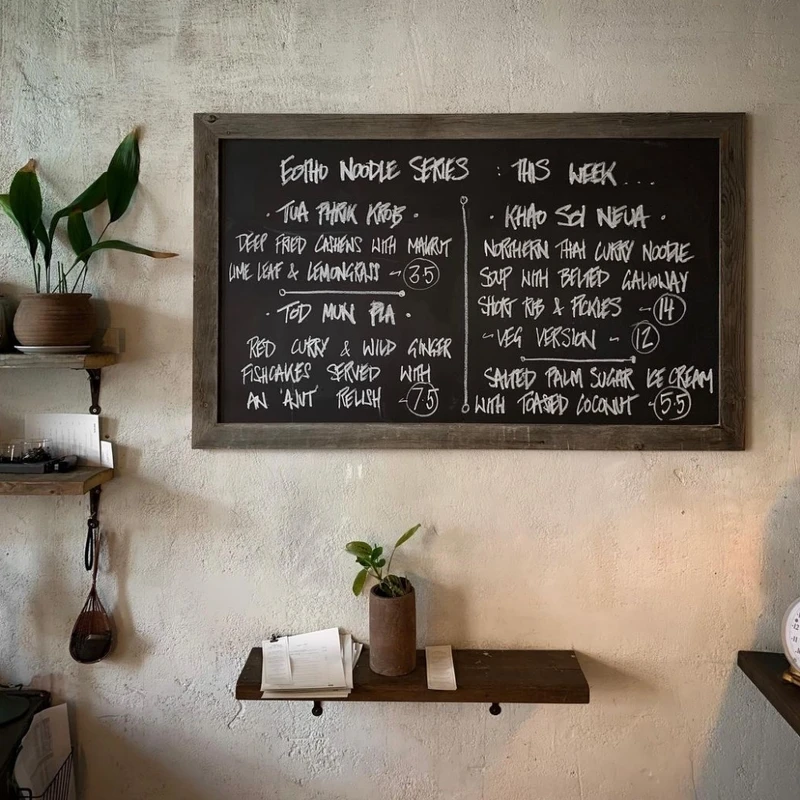 EOTHO NOODLE SERIES : THIS WEEK...
· TUA PHRIK KROB ·
DEEP FRIED CASHEWS WITH MAKRUT
LIME LEAF & LEMONGRASS - 3.5
· TOD MUN PLA ·
RED CURRY & WILD GINGER
FISHCAKES SERVED WITH
AN 'AJAT' RELISH - 7.5
· KHAO SOI NEUA ·
NORTHERN THAI CURRY NOODLE
SOUP WITH BELTED GALLOWAY
SHORT RIB & PICKLES - 14
- VEG VERSION - 12
SALTED PALM SUGAR ICE CREAM
WITH TOASTED COCONUT - 5.5